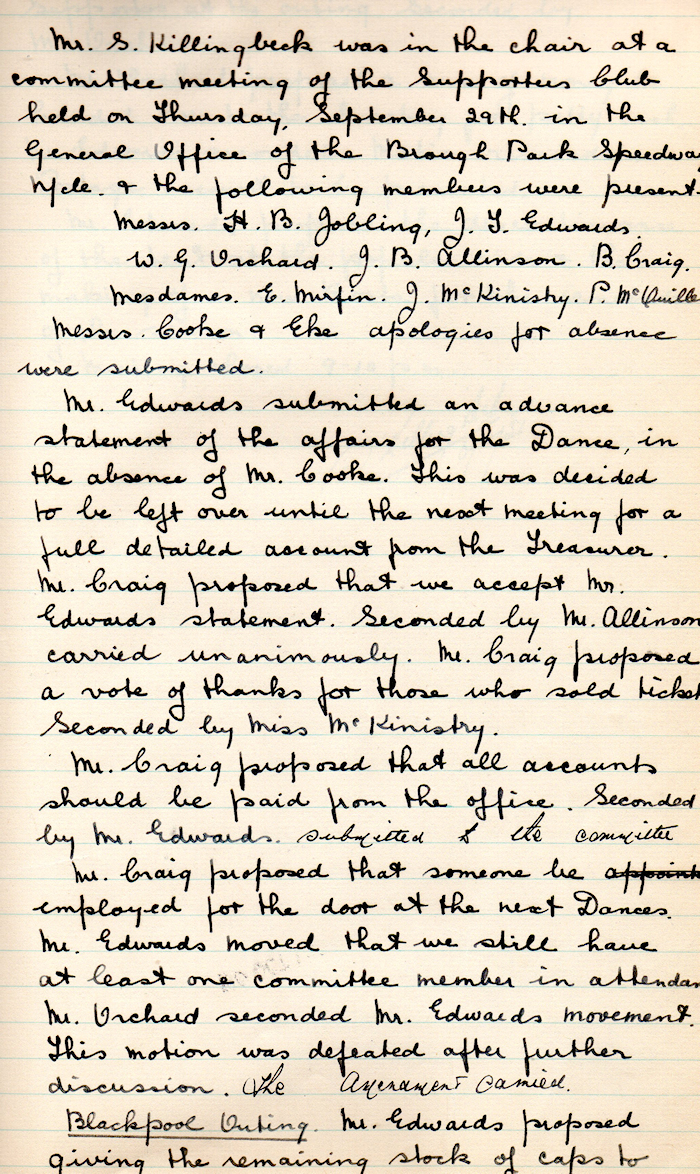 Mr. S. Killingbeck was in the chair at a
committee meeting of the Supporters Club
held on Thursday, September 29th. in the
General Office of the Brough Park Speedway
N/cle. & the following members were present.
Messrs. H. B. Jobling, J. T. Edwards.
W. G. Orchard. J. B. Allinson. B. Craig.
Mesdames. E. Mirfin. J. McKinistry. P. McQuille
Messrs. Cooke & Eke apologies for absence
were submitted.
Mr. Edwards submitted an advance
statement of the affairs for the Dance, in
the absence of Mr. Cooke. This was decided
to be left over until the next meeting for a
full detailed account from the Treasurer.
Mr. Craig proposed that we accept Mr.
Edwards statement. Seconded by Mr. Allinson
carried unanimously. Mr. Craig proposed
a vote of thanks for those who sold ticket
Seconded by Miss McKinistry.
Mr. Craig proposed that all accounts
should be paid from the office. Seconded
by Mr. Edwards. submitted to the committee
Mr. Craig proposed that someone be appoint
employed for the door at the next Dances.
Mr. Edwards moved that we still have
at least one committee member in attendan
Mr. Orchard seconded Mr. Edwards movement.
This motion was defeated after further
discussion. The Amenament carried.
Blackpool Outing. Mr. Edwards proposed
giving the remaining stock of caps to